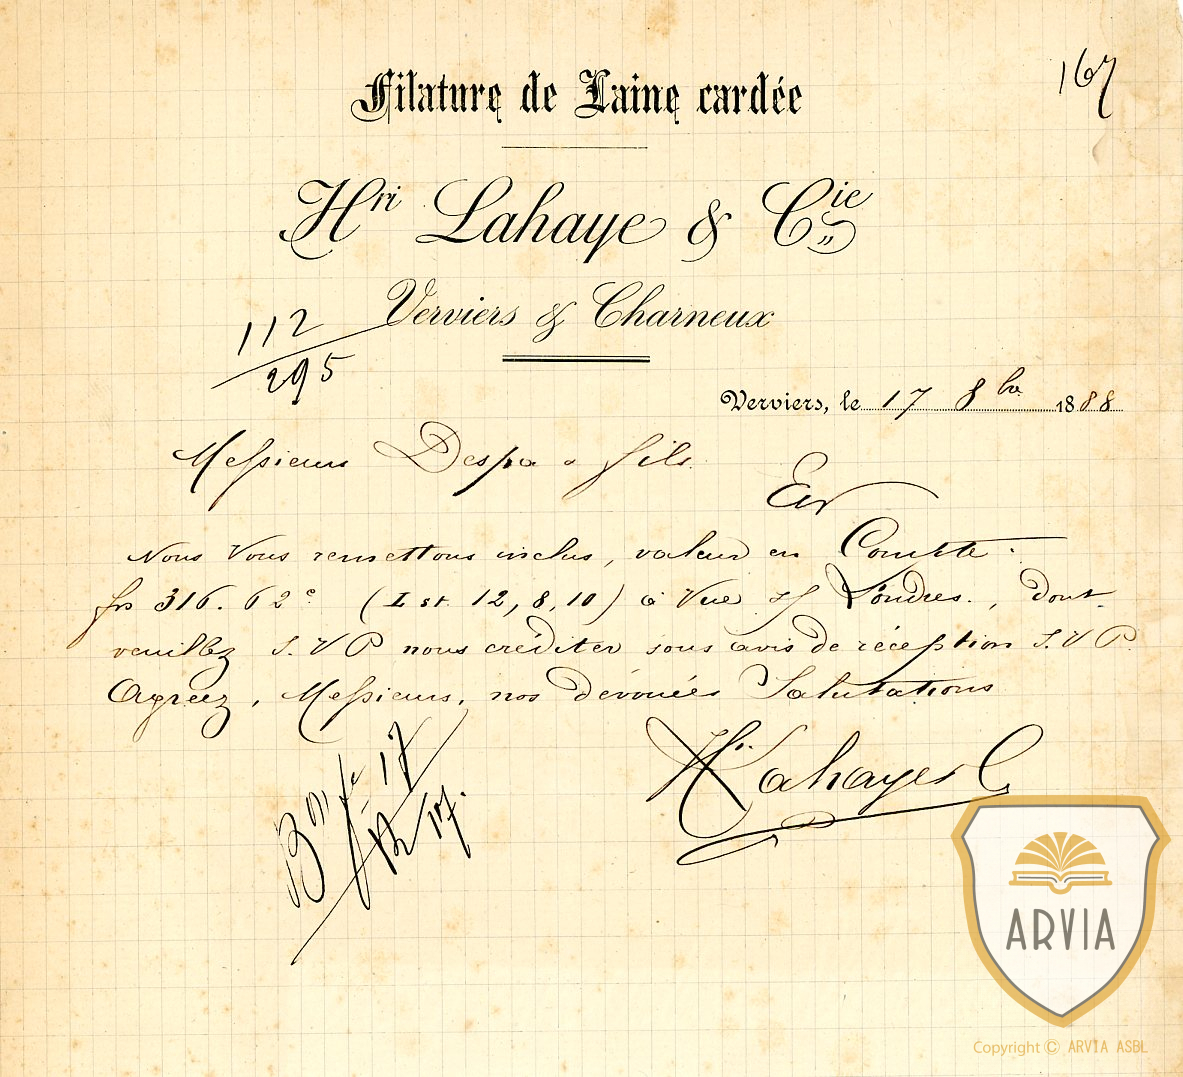 167
Filature de Laine cardée
Hri Lahaye & Cie
Verviers & Charneux
112
295
Verviers, le 17 8bre 1888
Messieurs Despa & fils
Ev
Nous Vous remettons inclus, valeur en Compte.
frs 316.62c (Lst. 12,8,10) à Vue s/ Londres., dont
veuillez S.V.P nous créditer sous avis de réception S.V.P.
Agréez, Messieurs, nos dévouées Salutations
Hri Lahaye & C
17
17.
ARVIA
Copyright © ARVIA ASBL